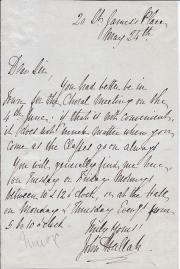 20 St James's Place
May 24th.
Dear Sir
You had better be in
Town for the Choral Meeting on the
4th June: if that is not convenient
it does not much matter when you
come as the Classes go on always
You will generally find me here
on Tuesday or Friday Mornings
between 10 & 12 o'clock, or at the Hall
on Monday & Thursday Even^gs from
5 to 10 o'clock.
Truly Yours
John Hullah